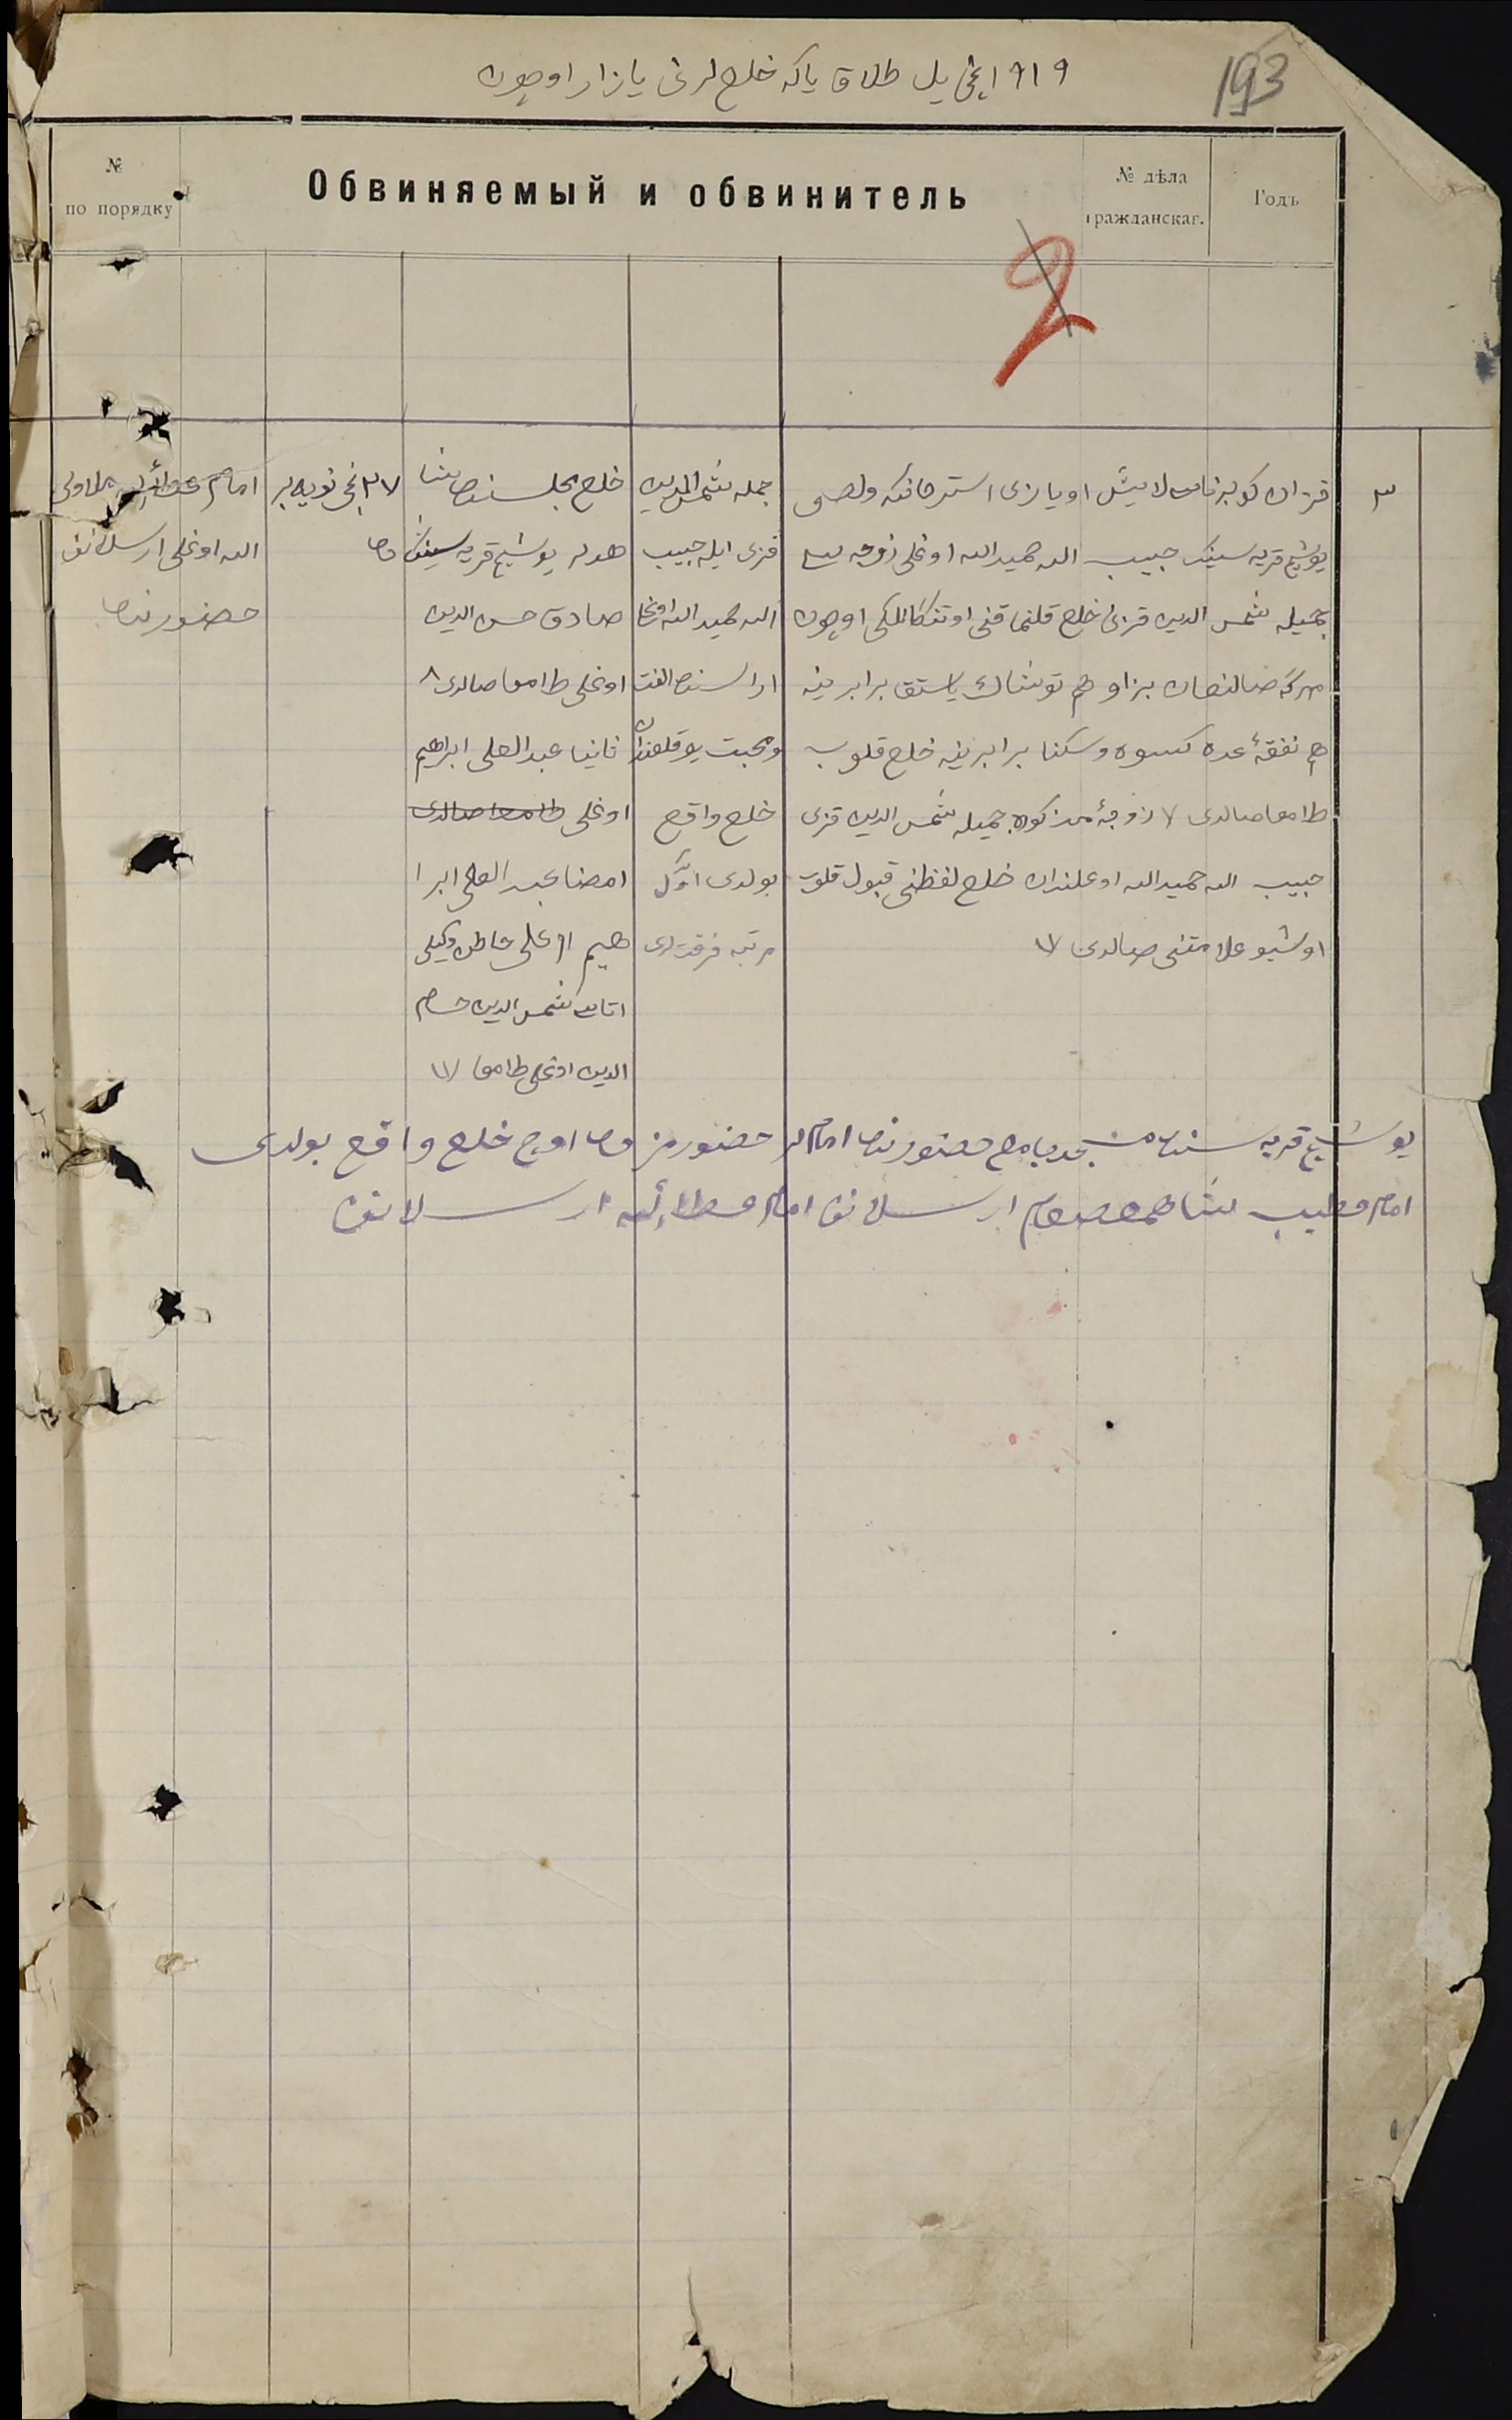 193
١٩١٩ نچی یل طلاق یاکه خلع لرنی یازار اوچون
№ по порядку
Обвиняемый и обвинитель
№ дѣла гражданскаг.
Годъ
2
٣
قزان کوبرناسی لایش اویازی استرخانکه ولصی
یوشچ قریه سینک حبیب الله حمیدالله اوغلی زوجه سی
جمیله شمس الدین قزینی خلع قلنماقنی اوتنکانلکی اوچون
هم نفقهٔ عده کسوه وسکنا برابرینه خلع قلوب
طامغا صالدی زوجهٔ مذکوره جمیله شمس الدین قزی
حبیب الله حمیدالله اوغلندان خلع لفظنی قبول قلوب
اوشبو علامتنی صالدی
جمله شمس الدین
قزی ایله حبیب
الله حمیدالله اوغلی
اراسنده الفت
ومحبت یوقلقندان
خلع واقع
بولدی اوّل
مرتبه فرقت دی
خلع مجلسنده
یوشچ قریه سینک
صادق حسن الدین
اوغلی طامغا صالدی
ثانیا عبدالعلی ابراهیم
اوغلی طامغا صالدی
امضا عبدالعلی ابرا
هیم اوغلی خاطن وکیلی
اتاسی شمس الدین حسام
الدین اوغلی طامغا
٢٧ نچی نویه بر
ده
امام
الله اوغلی ارسلانف
حضورنده
یوشچ قریه سنده مسجد جامع حضورنده اماملر حضورمزده اوچ خلع واقع بولدی
امام خطیب ارسلانف امام عطاءالله ارسلانف